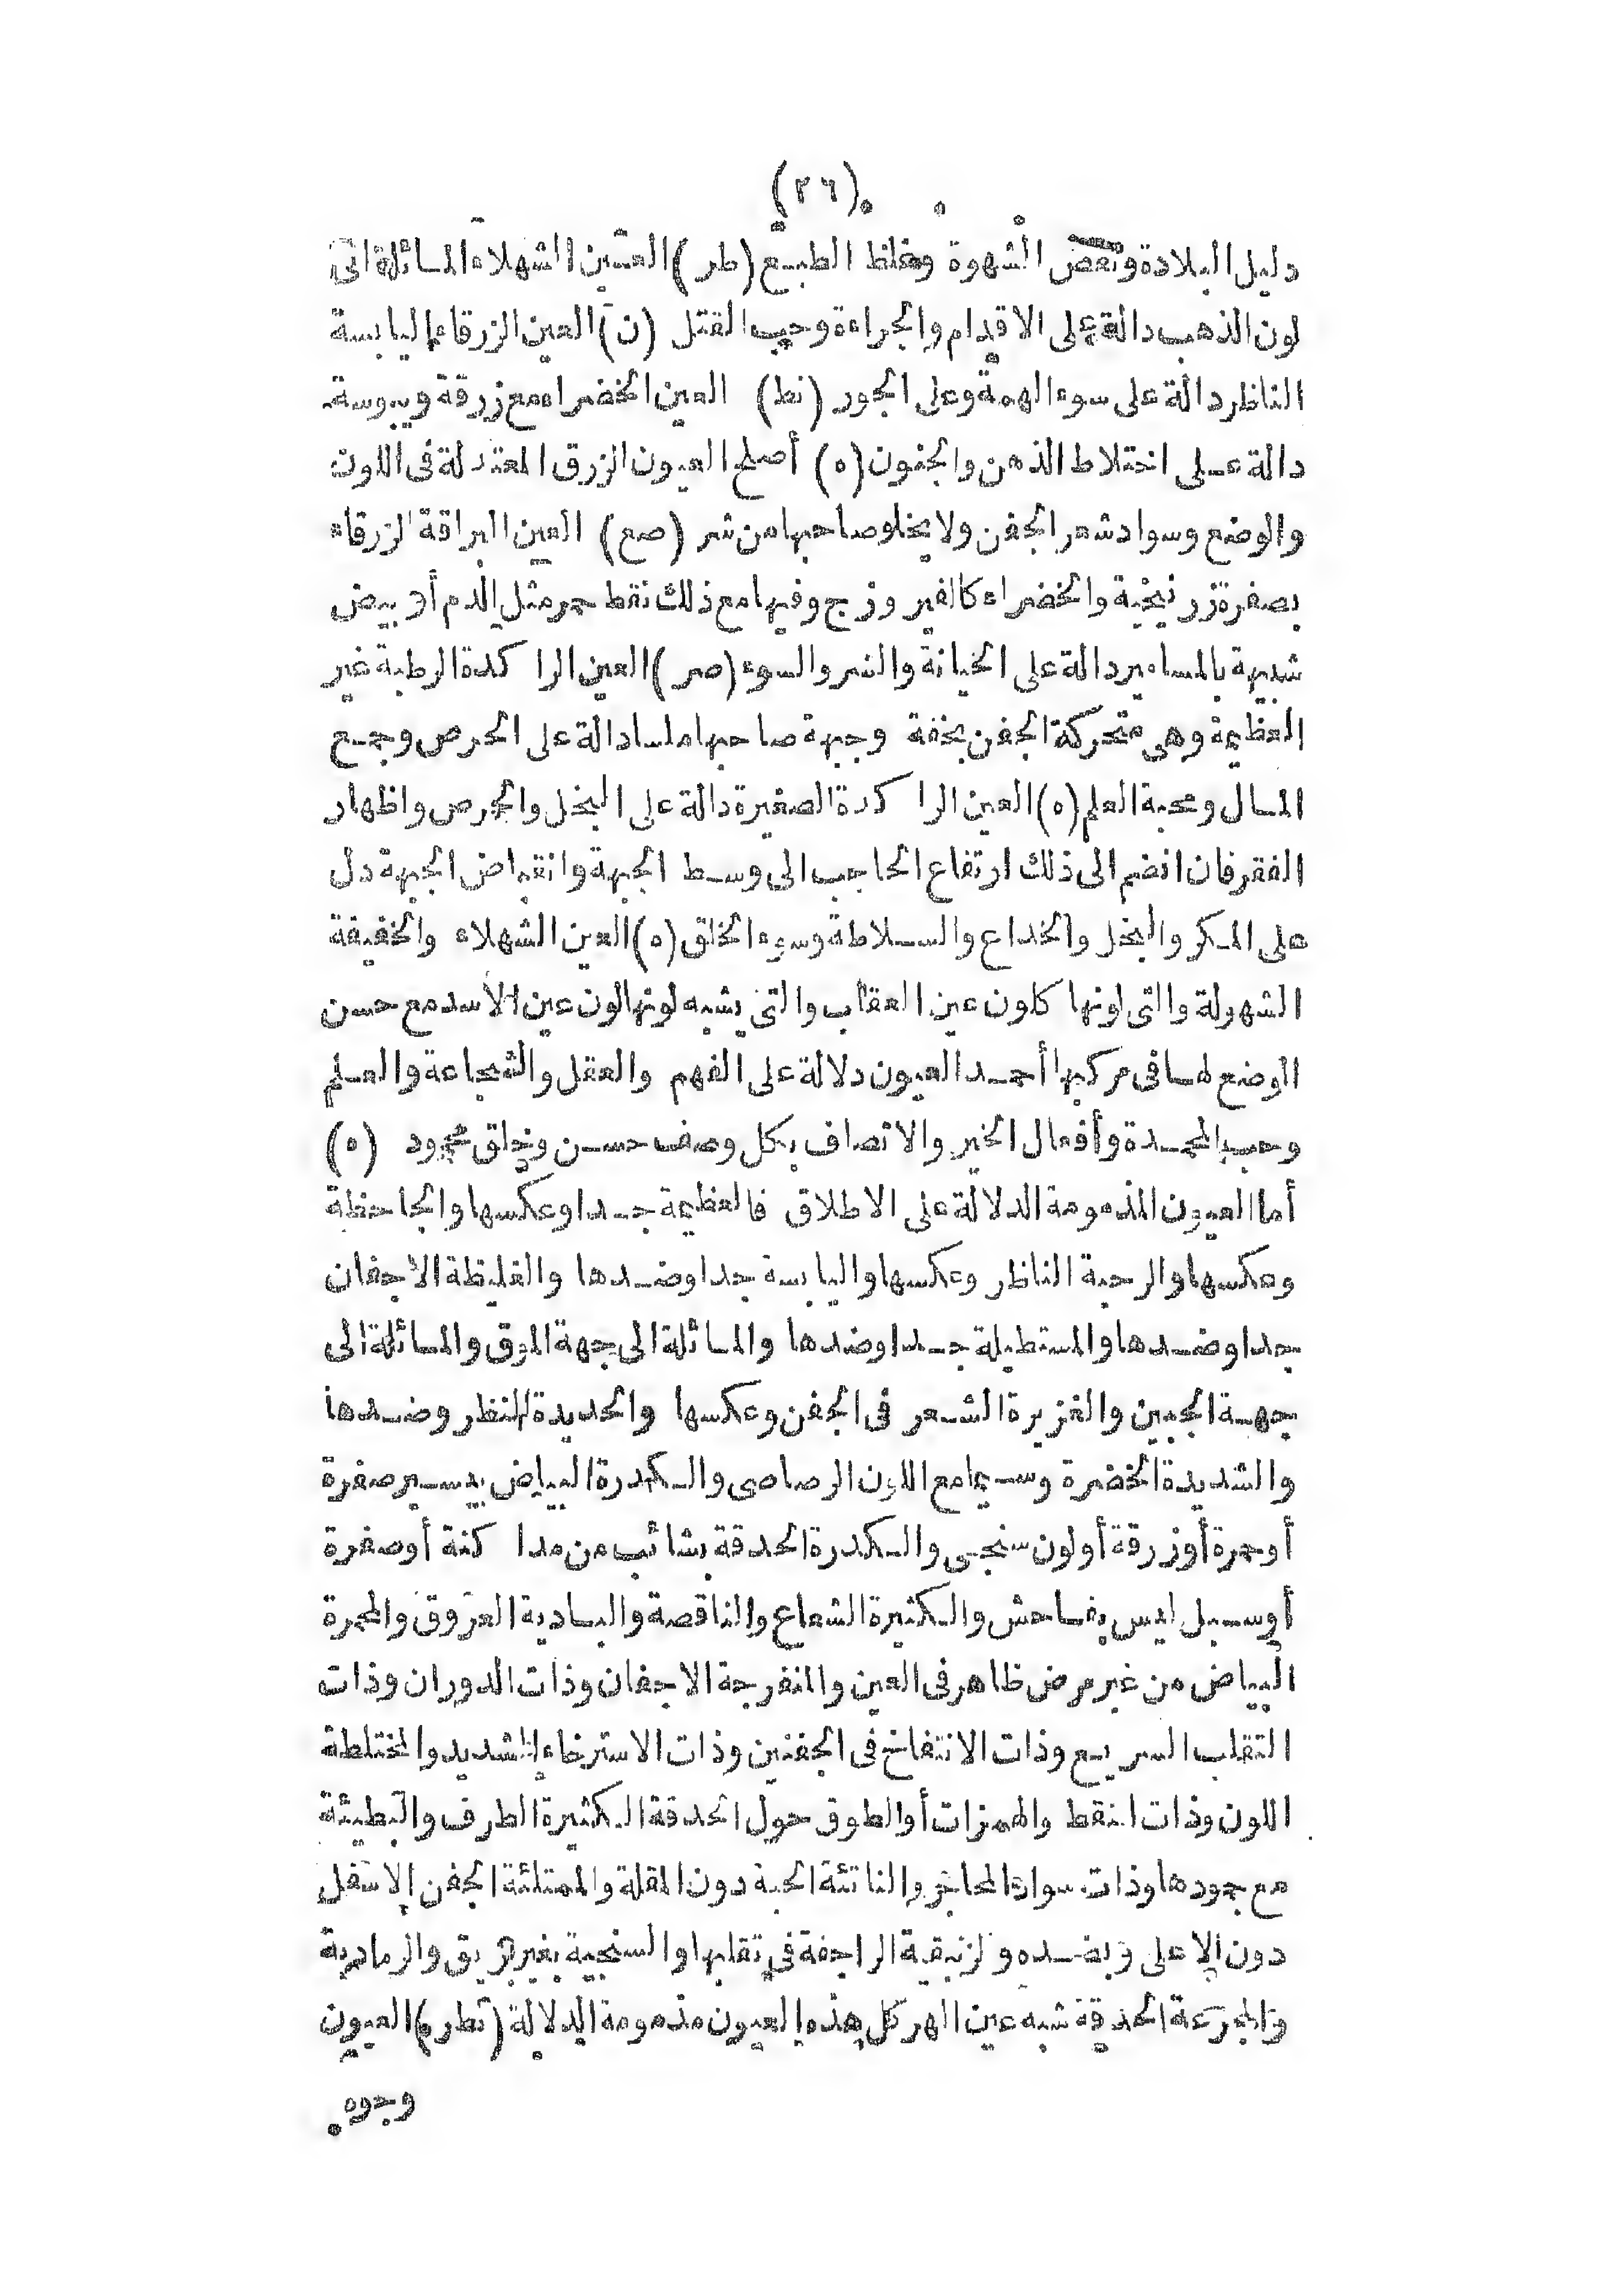 (٢٦)
دليل البلادة ونقص الشهوة وغلظ الطبع (طر) العين الشهلاء المائلة الى
لون الذهب دالة على الاقدام والجراءة وحب القتل (ن) العين الزرقاء اليابسة
الناظر دالة على سوء الهمة وعلى الجور (نط) العين الخضراء مع زرقة ويبوسة
دالة على اختلاط الذهن والجنون (ه) أصلح العيون الزرق المعتدلة فى اللون
والوضع وسواد شعر الجفن ولا يخلو صاحبها من شر (صع) العين البراقة الزرقاء
بصفرة زرنيخية والخضراء كالفيروزج وفيها مع ذلك نقط حمر مثل الدم أو بيض
شبيهة بالمسامير دالة على الخيانة والشر والسوء (صر) العين الراكدة الرطبة غير
العظيمة وهى متحركة الجفن بخفة وجبهة صاحبها ملسا دالة على الحرص وجمع
المال ومحبة العلم (ه) العين الراكدة الصغيرة دالة على البخل والحرص واظهار
الفقر فان انضم الى ذلك ارتفاع الحاجب الى وسط الجبهة وانقباض الجبهة دل
على المكر والبخل والخداع والسلاطة وسوء الخلق (ه) العين الشهلاء والخفيفة
الشهولة والتى لونها كلون عين العقاب والتى يشبه لونها لون عين الاسد مع حسن
الوضع لها فى مركبها أحمد العيون دلالة على الفهم والعقل والشجاعة والعلم
وحب المحمدة وأفعال الخير والاتصاف بكل وصف حسن وخلق محمود (ه)
أما العيون المذمومة الدلالة على الاطلاق فالعظيمة جدا وعكسها والجاحظة
وعكسها والرحبة الناظر وعكسها واليابسة جدا وضدها والغليظة الاجفان
جدا وضدها والمستطيلة جدا وضدها والمائلة الى جهة الموق والمائلة الى
جهة الجبين والغزيرة الشعر فى الجفن وعكسها والحديدة النظر وضدها
والشديدة الخضرة وسيما مع اللون الرصاصى والكدرة البياض بيسير صفرة
أو حمرة أو زرقة أو لون سنجبى والكدرة الحدقة بشائب من مداكنة أو صفرة
أو سبل ليس بفاحش والكثيرة الشعاع والناقصة والبادية العروق والمحمرة
البياض من غير مرض ظاهر فى العين والمنفرجة الاجفان وذات الدوران وذات
التقلب السريع وذات الانتفاخ فى الجفنين وذات الاسترخاء الشديد والمختلطة
اللون وذات النقط والهمزات أو الطوق حول الحدقة الكثيرة الطرف والبطيئة
مع جمودها وذات سواد المحاجر والناتئة الحبة دون المقلة والممتلئة الجفن الاسفل
دون الاعلى وبضده والزئبقية الراجفة فى تقلبها والسنجبية بغير بريق والرمادية
والمجزعة الحدقة شبه عين الهر كل هذه العيون مذمومة الدلالة (نطر م) العيون
وجوه